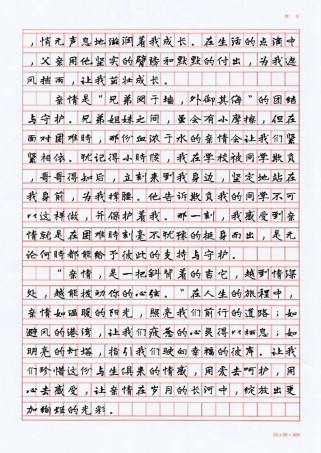 ，悄无声息地滋润着我成长。在生活的点滴中
，父亲用他坚实的臂膀和默默的付出，为我遮
风挡雨，让我茁壮成长。
亲情是“兄弟阋于墙，外御其侮”的团结
与守护。兄弟姐妹之间，虽会有小摩擦，但在
面对困难时，那份血浓于水的亲情会让我们紧
紧相依。犹记得小时候，我在学校被同学欺负
，哥哥得知后，立刻来到我身边，坚定地站在
我身前，为我撑腰。他告诉欺负我的同学不可
以这样做，并保护着我。那一刻，我感受到亲
情就是在困难时刻毫不犹豫的挺身而出，是无
论何时都能给予彼此的支持与守护。
“亲情，是一把斜背着的吉它，越到情深
处，越能拨动你的心弦。”在人生的旅程中，
亲情如温暖的阳光，照亮我们前行的道路；如
避风的港湾，让我们疲惫的心灵得以栖息；如
明亮的灯塔，指引我们驶向幸福的彼岸。让我
们珍惜这份与生俱来的情感，用爱去呵护，用
心去感受，让亲情在岁月的长河中，绽放出更
加绚烂的光彩。
20×20=400